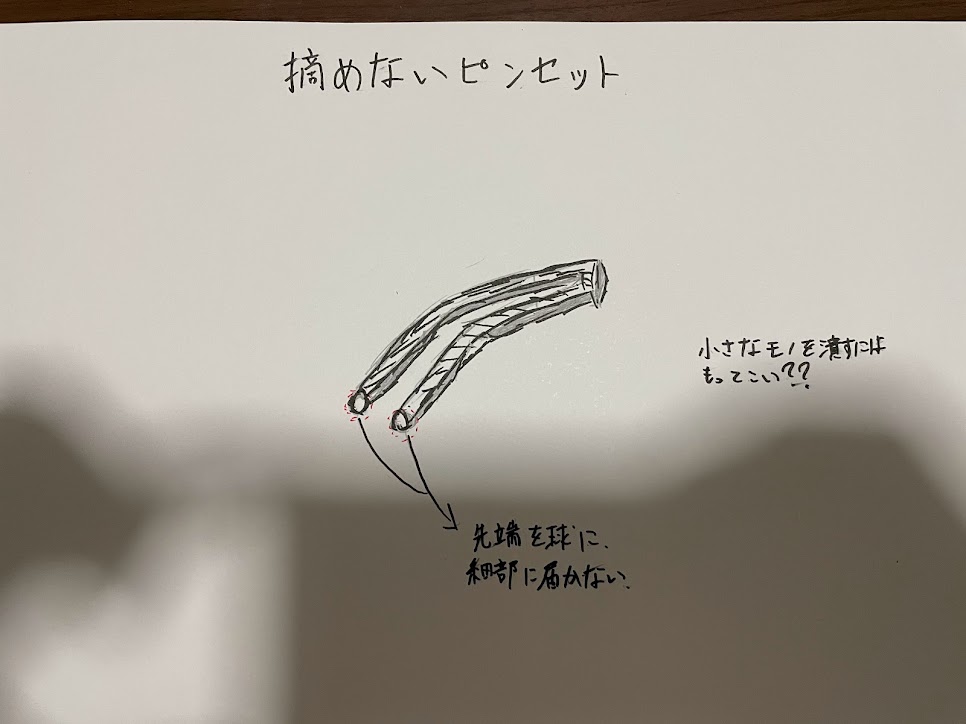 摘めないピンセット
小さなモノを潰すには
もってこい??
先端を球に、
細部に届かない、